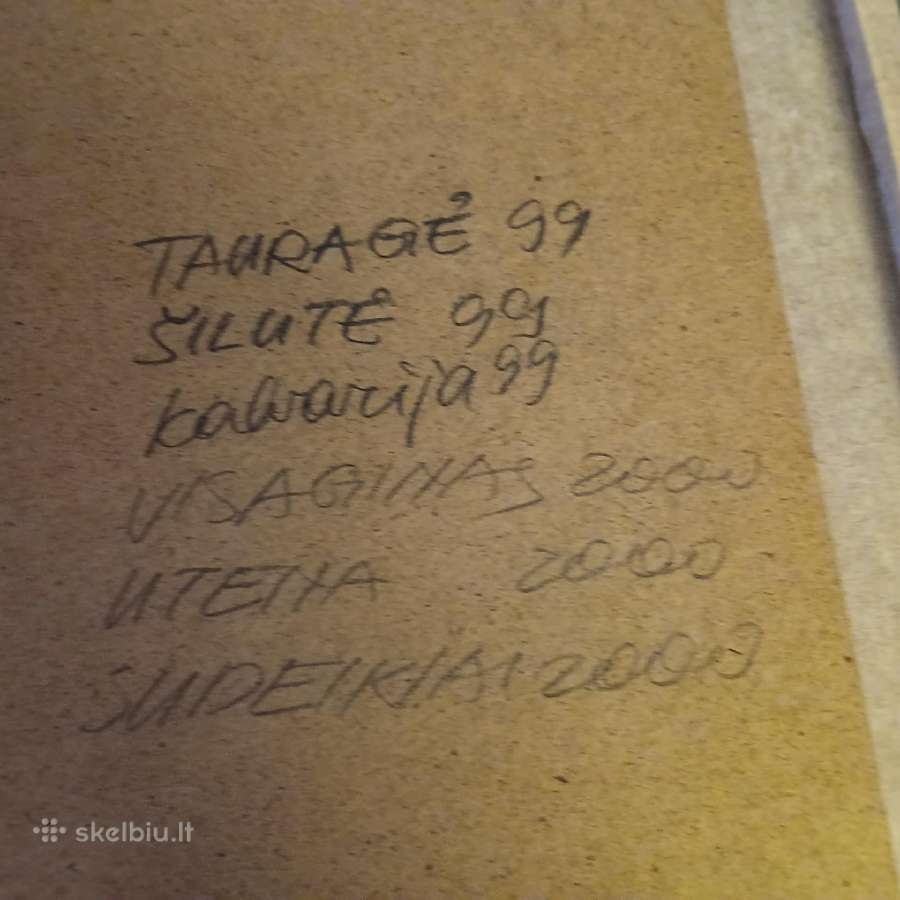 TAURAGĖ 99
ŠILUTĖ 99
Kalvarija 99
VISAGINAS 2000
UTENA 2000
SUDEIKIAI 2000
skelbiu.lt